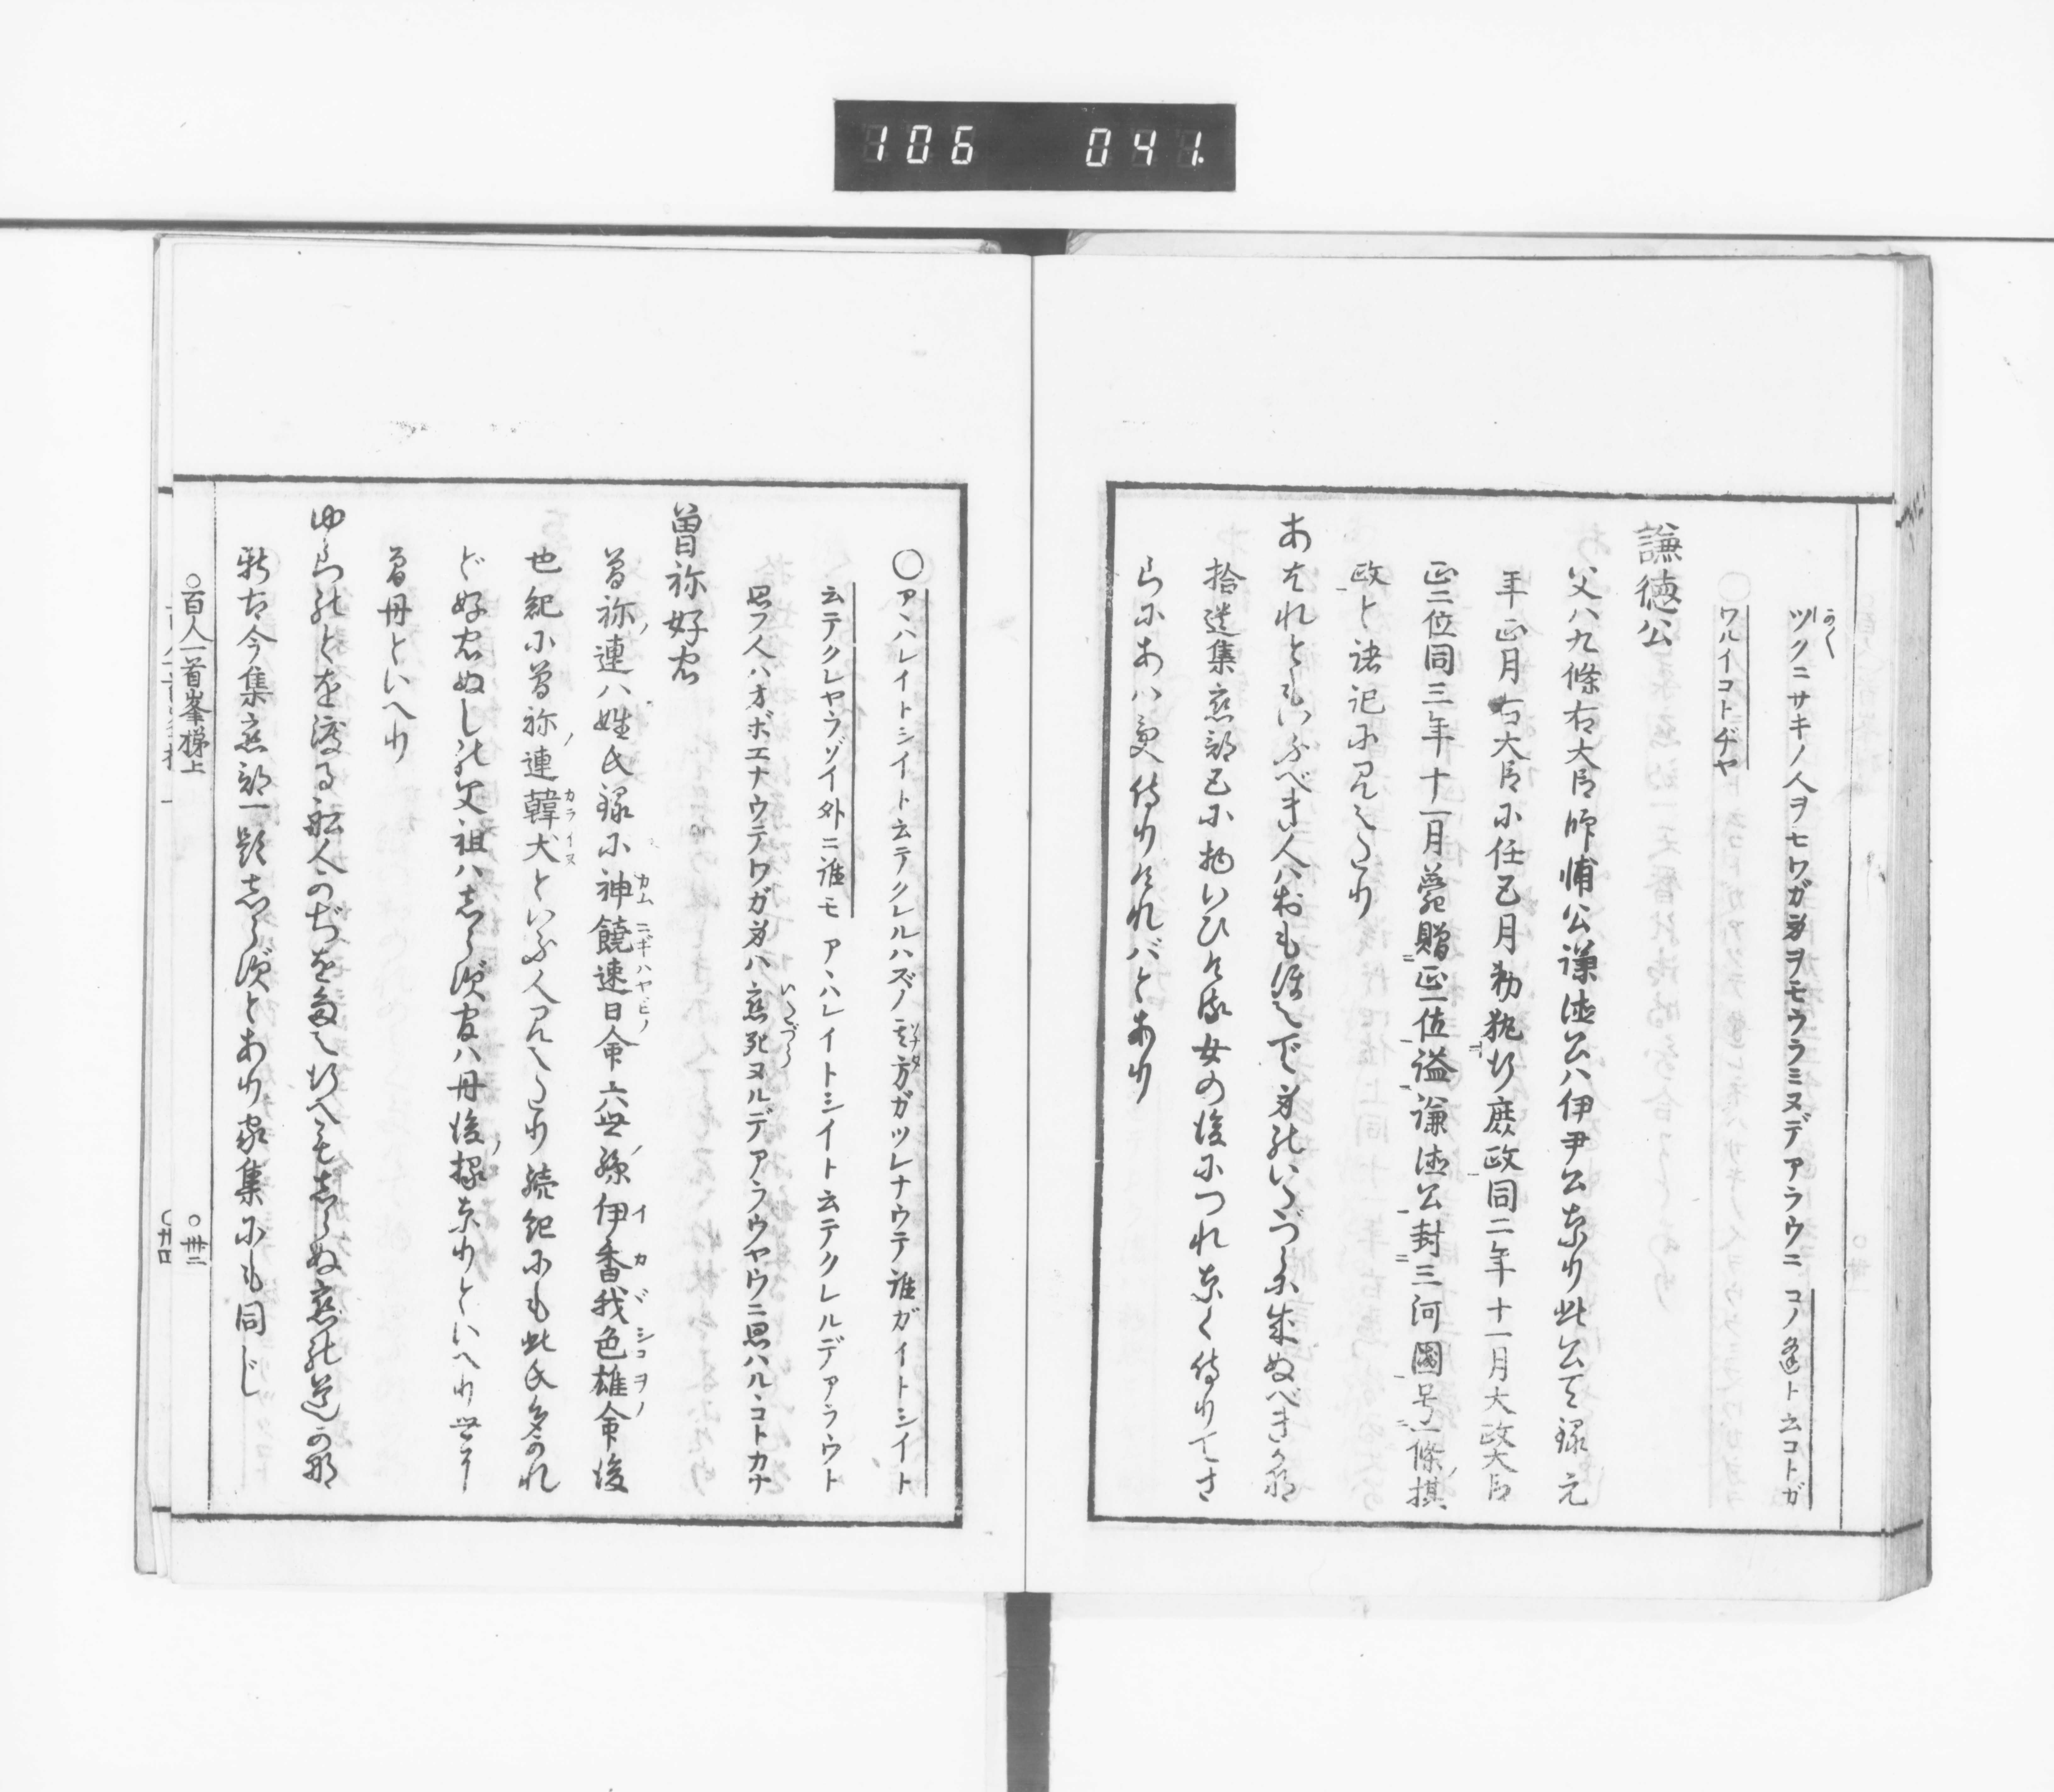 106 041
ツクニサキノ人ヲモワガ身ヲモウラミヌデアラウニコノ逢ト云コトガ
ワルイコトヂヤ
謙徳公
父ハ九條右大臣師輔公謙徳公ハ伊尹公なり此公天禄元
年正月右大臣に任五月勅執行庶政同二年十一月大政大臣
正二位同三年十一月薨贈正一位謚謙徳公封三河國号一條摂
政と諸記に見えたり
あはれともいふべき人はおもほえで身のいたづらに成ぬべきかな
拾遺集恋部五に物いひける女の後につれなく侍りてさ
らにあハず侍りけれバとあり
○アヽハレイトシイト云テクレルハズノ其方ガツレナウテ誰ガイトシイト
云テクレヤラゾイ外ニ誰モアヽハレイトシイト云テクレルデアラウト
思フ人ハオボエナウテワガ身ハ恋死ヌルデアラウヤウニ思ハルヽコトカナ
曽祢好忠
曽祢ノ連ハ姓氏録に神饒速日命六世ノ孫伊香我色雄命後
也紀に曽祢ノ連韓犬といふ人見えたり続紀にも此氏多かれ
ど好忠ぬしの父祖ハしらず官ハ丹後ノ掾なりといへり世に
曽丹といへり
ゆらのとを渡る舩人かぢをたえ行へもしらぬ恋の道かな
新古今集恋部一題しらずとあり家集にも同じ
○百人一首峯梯上 ○卅三
○卅四